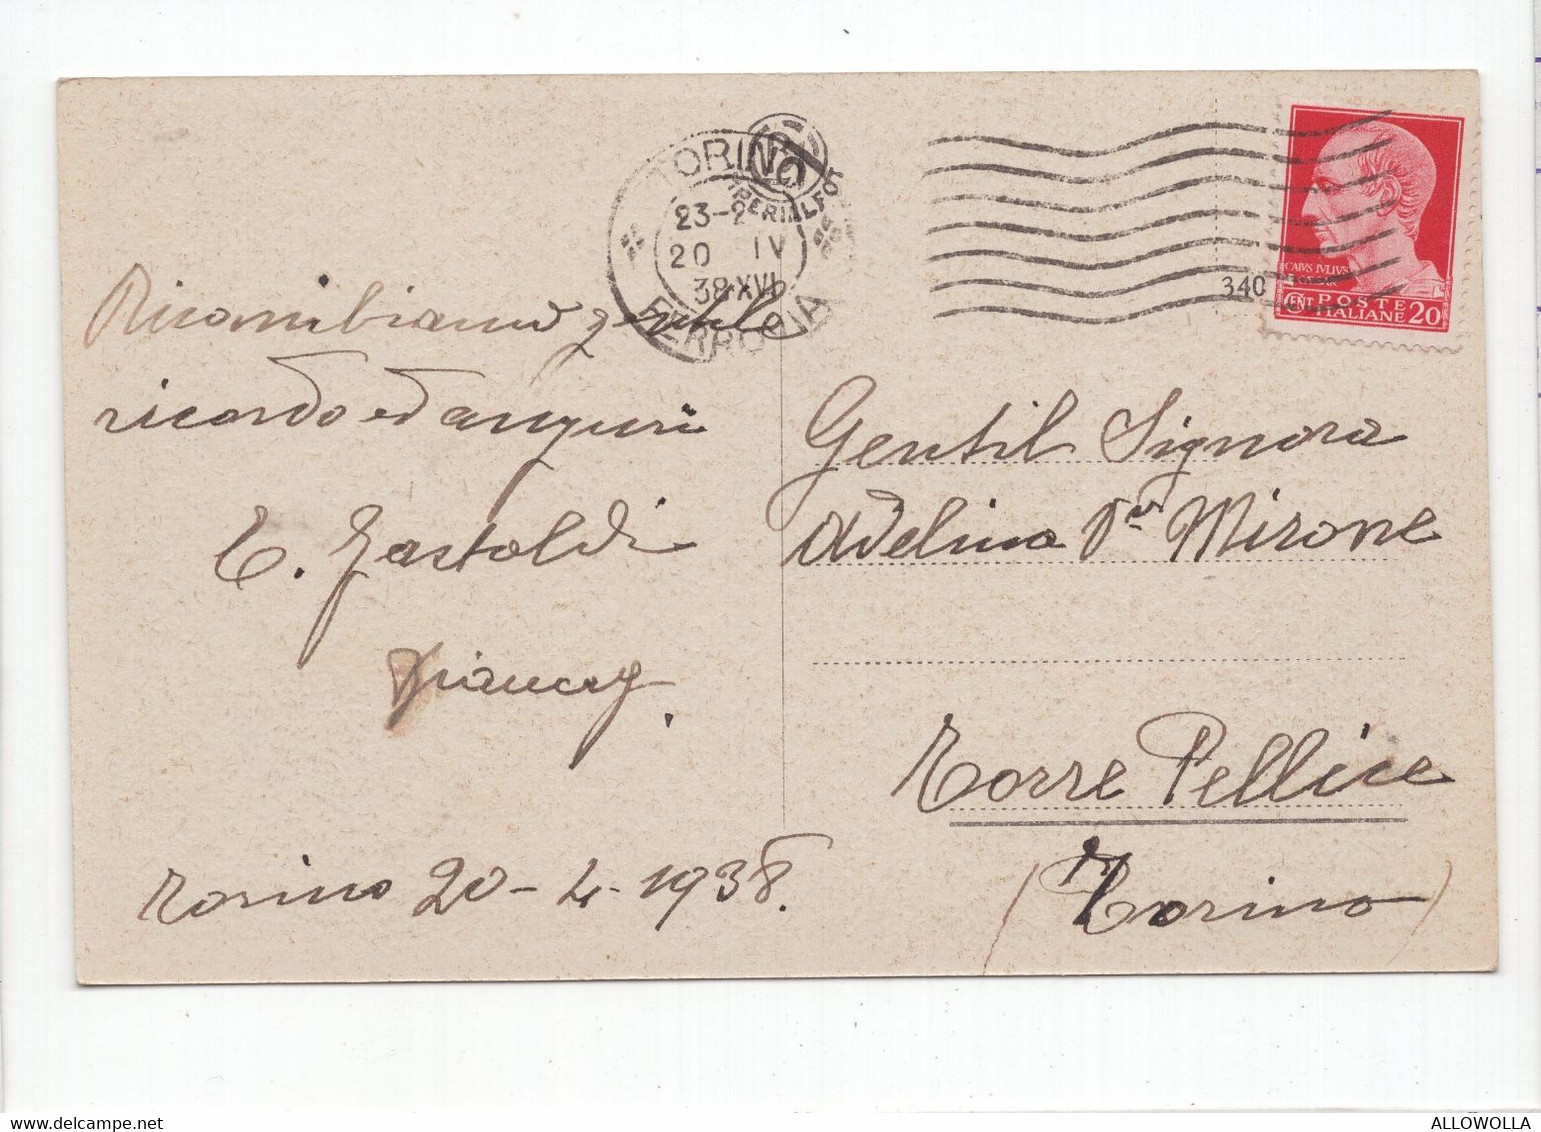 TORINO
23-2
20 IV
38 XVI
FERROVIA
IMPERIAL FOT
340
CAIVS IVLIVS
CENT POSTE 20
ITALIANE
Ricambiamo gentile
ricordo ed auguri
C. Gastoldi
Torino 20-4-1938.
Gentil Signora
Adelina Mirone
Torre Pellice
(Torino)
www.delcampe.net
ALLOWOLLA